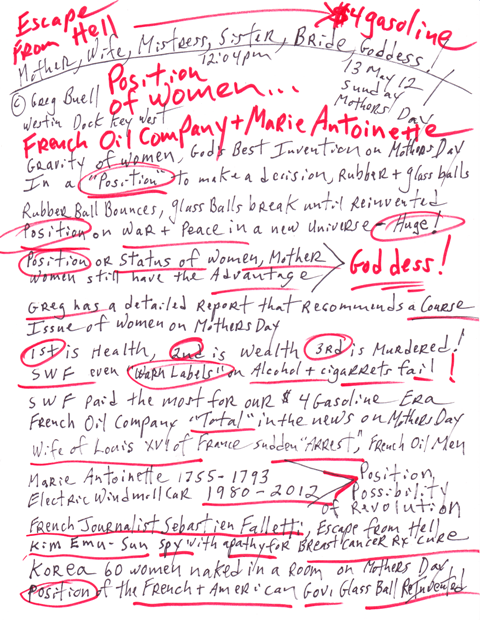 Escape From Hell → $4 gasoline
Mother, Wife, Mistress, Sister, Bride, Goddess!
12:04pm
13 May 12
Sunday
Mothers Day
© Greg Buell
Westin Dock Key West
Position of women...
French Oil Company + Marie Antoinette
Gravity of women, Gods Best Invention on Mothers Day
In a "Position" to make a decision, Rubber + glass balls
Rubber Ball Bounces, glass Balls break until reinvented
Position on War + Peace in a new Universe - Huge!
Position or Status of Women, Mother
Women still have the Advantage
Goddess!
Greg has a detailed Report that Recommends a Course
Issue of Women on Mothers Day
1st is Health, 2nd is Wealth 3rd is Murdered!
SWF even "Warn Labels" on Alcohol + cigarrets fail!
SWF paid the most for our $4 Gasoline Era
French Oil Company "Total" in the news on Mothers Day
Wife of Louis XVI of France sudden "Arrest", French Oil Men
Marie Antoinette 1755-1793
Electric Windmill Car 1980-2012
Position, Possibility of Revolution
French Journalist Sebastien Falletti, Escape from Hell
Kim Emu-Sun Spy with apathy for Breast Cancer Rx Cure
Korea 60 women naked in a room on Mothers Day,
Position of the French + American Govi Glass Ball Reinvented